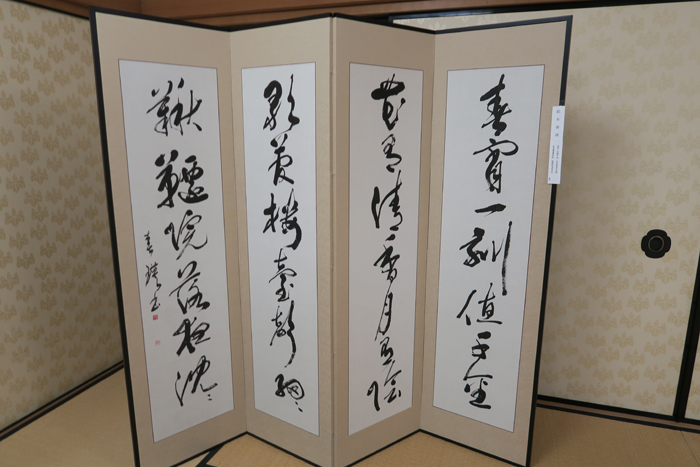 春宵一刻値千金
花有清香月有陰
歌管樓臺聲細々
鞦韆院落夜沈々